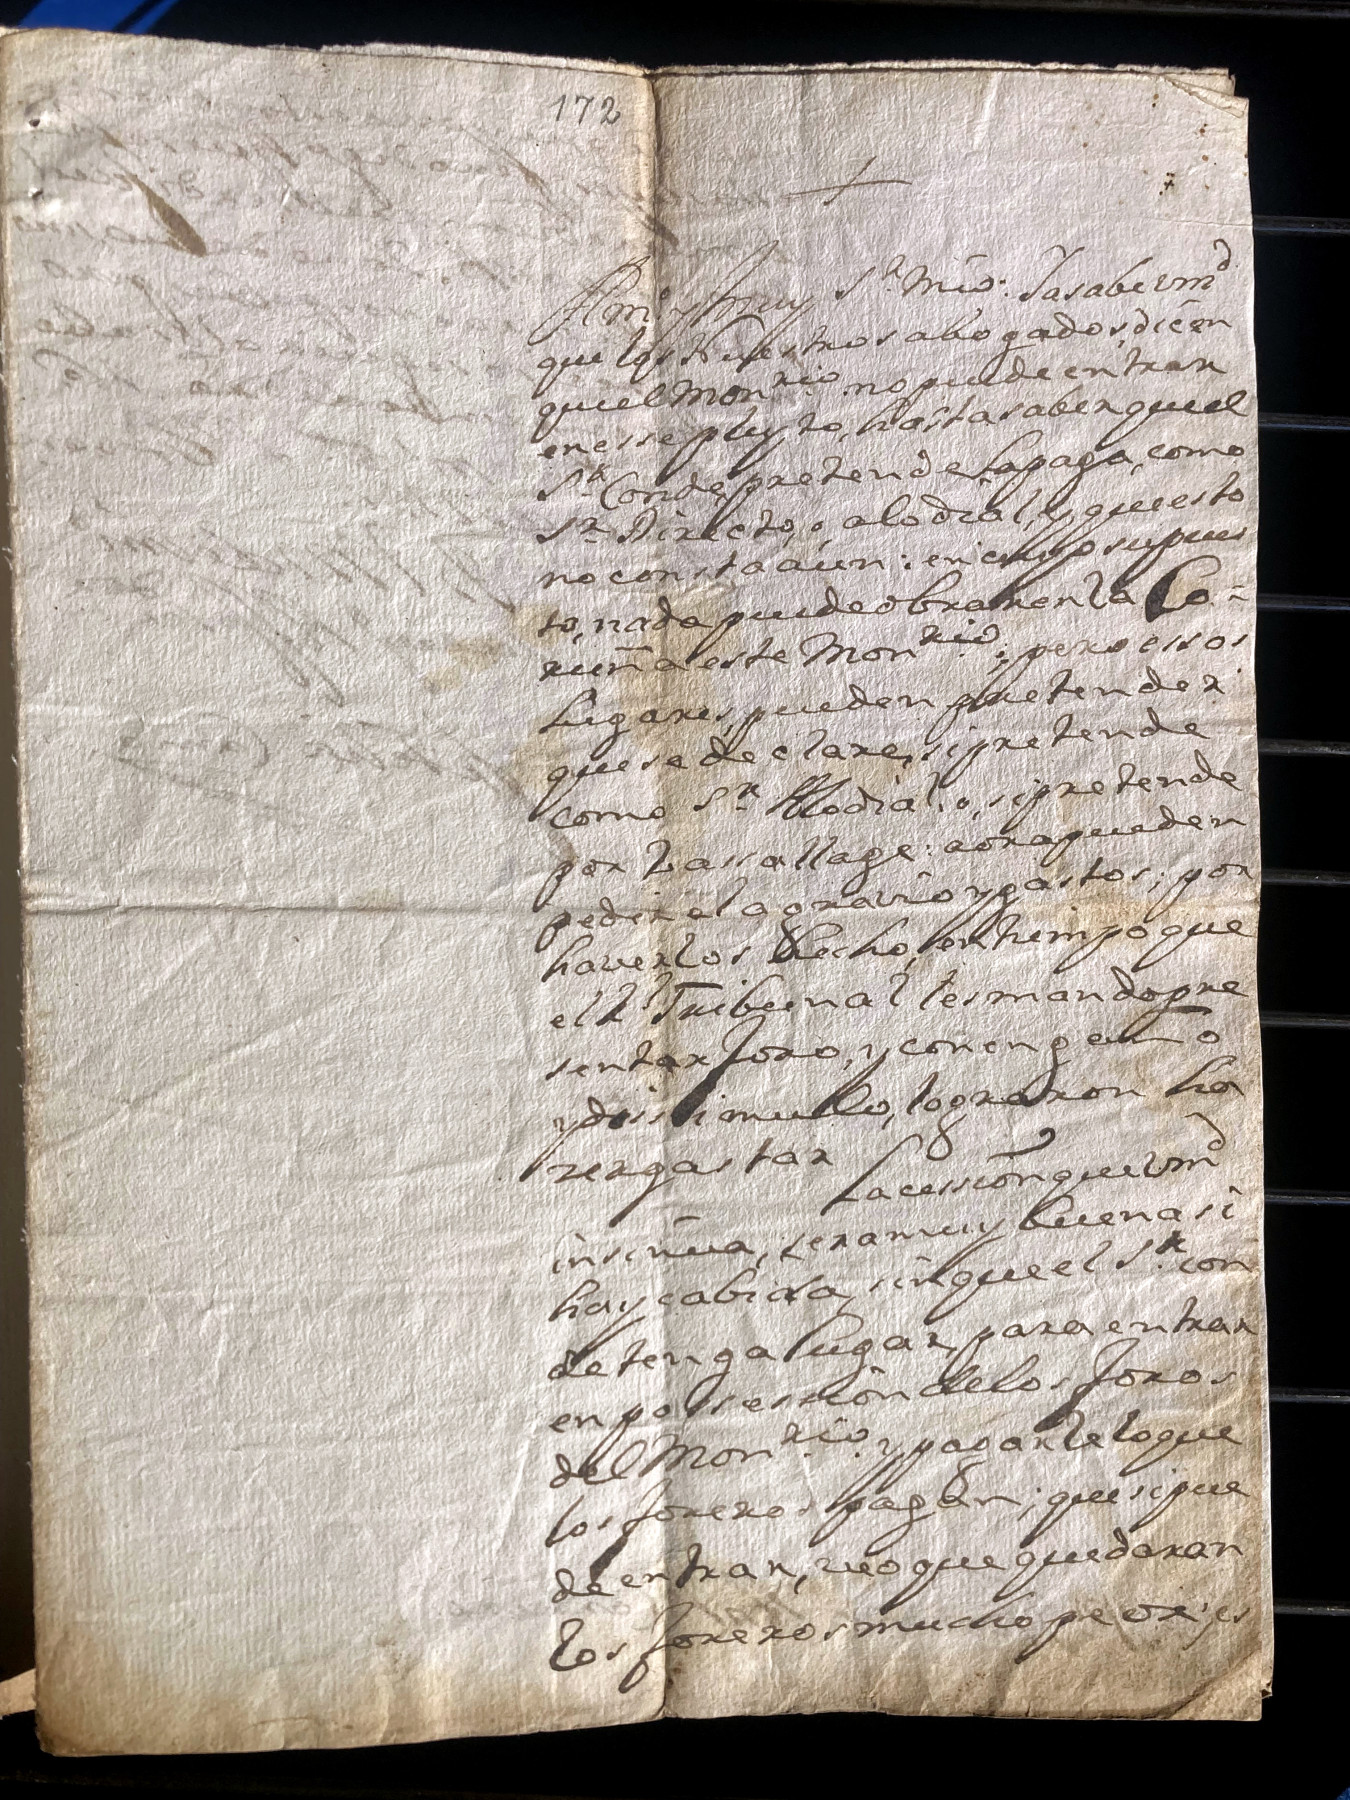 172
+
Am.º y muy S.r mio: Ya sabe vmd
que los Nuestros abogados, dicen
que el Mon.rio no puede entrar
en esse pleyto, hasta saber que el
S.r Conde pretende la paga, como
S.r Directo, o alodial, y que esto
no consta aun: en cuyo supues
to, nada puede obrar en la Co-
ruña este Mon.rio; pero essos
lugares, pueden pretender
que se declare, si pretende
como S.r Alodial, o, si pretende
por Vassallage: aora pueden
pedir el agravio y gastos; por
haverlos hecho, en tiempo que
el R.l Tribunal les mando pre
sentar foro, y con engaño
y dissimullo, lograron ha
zer gastar La cession que vmd
insinua, sera muy buena si
hay cabida, sin que el S.r con
de tenga lugar, para entrar
en possession de los foros
del Mon.rio y pagarle lo que
los foreros pagan; que si pue
de entrar, veo que quedaran
los foreros mucho peor; es